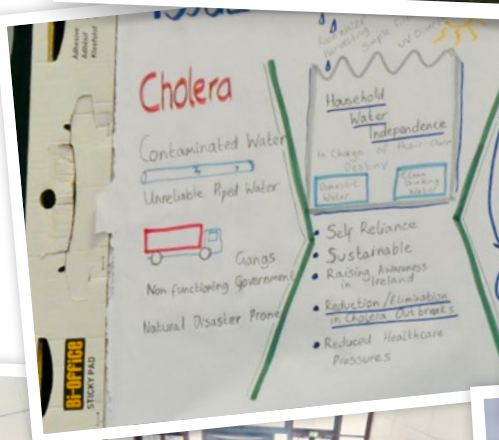 Adhesive
Cholera
Contaminated Water
Unreliable Piped Water
Gangs
Non functioning Government
Natural Disaster Prone
Harvesting
Simple
UV
Household
Water
Independence
In Charge of Their Own
Destiny
Domestic
Water
Clean
Drinking
Water
• Self Reliance
• Sustainable
• Raising Awareness
in Ireland
• Reduction/Elimination
in Cholera Outbreaks
• Reduced Healthcare
Pressures
Bi-Office
STICKY PAD